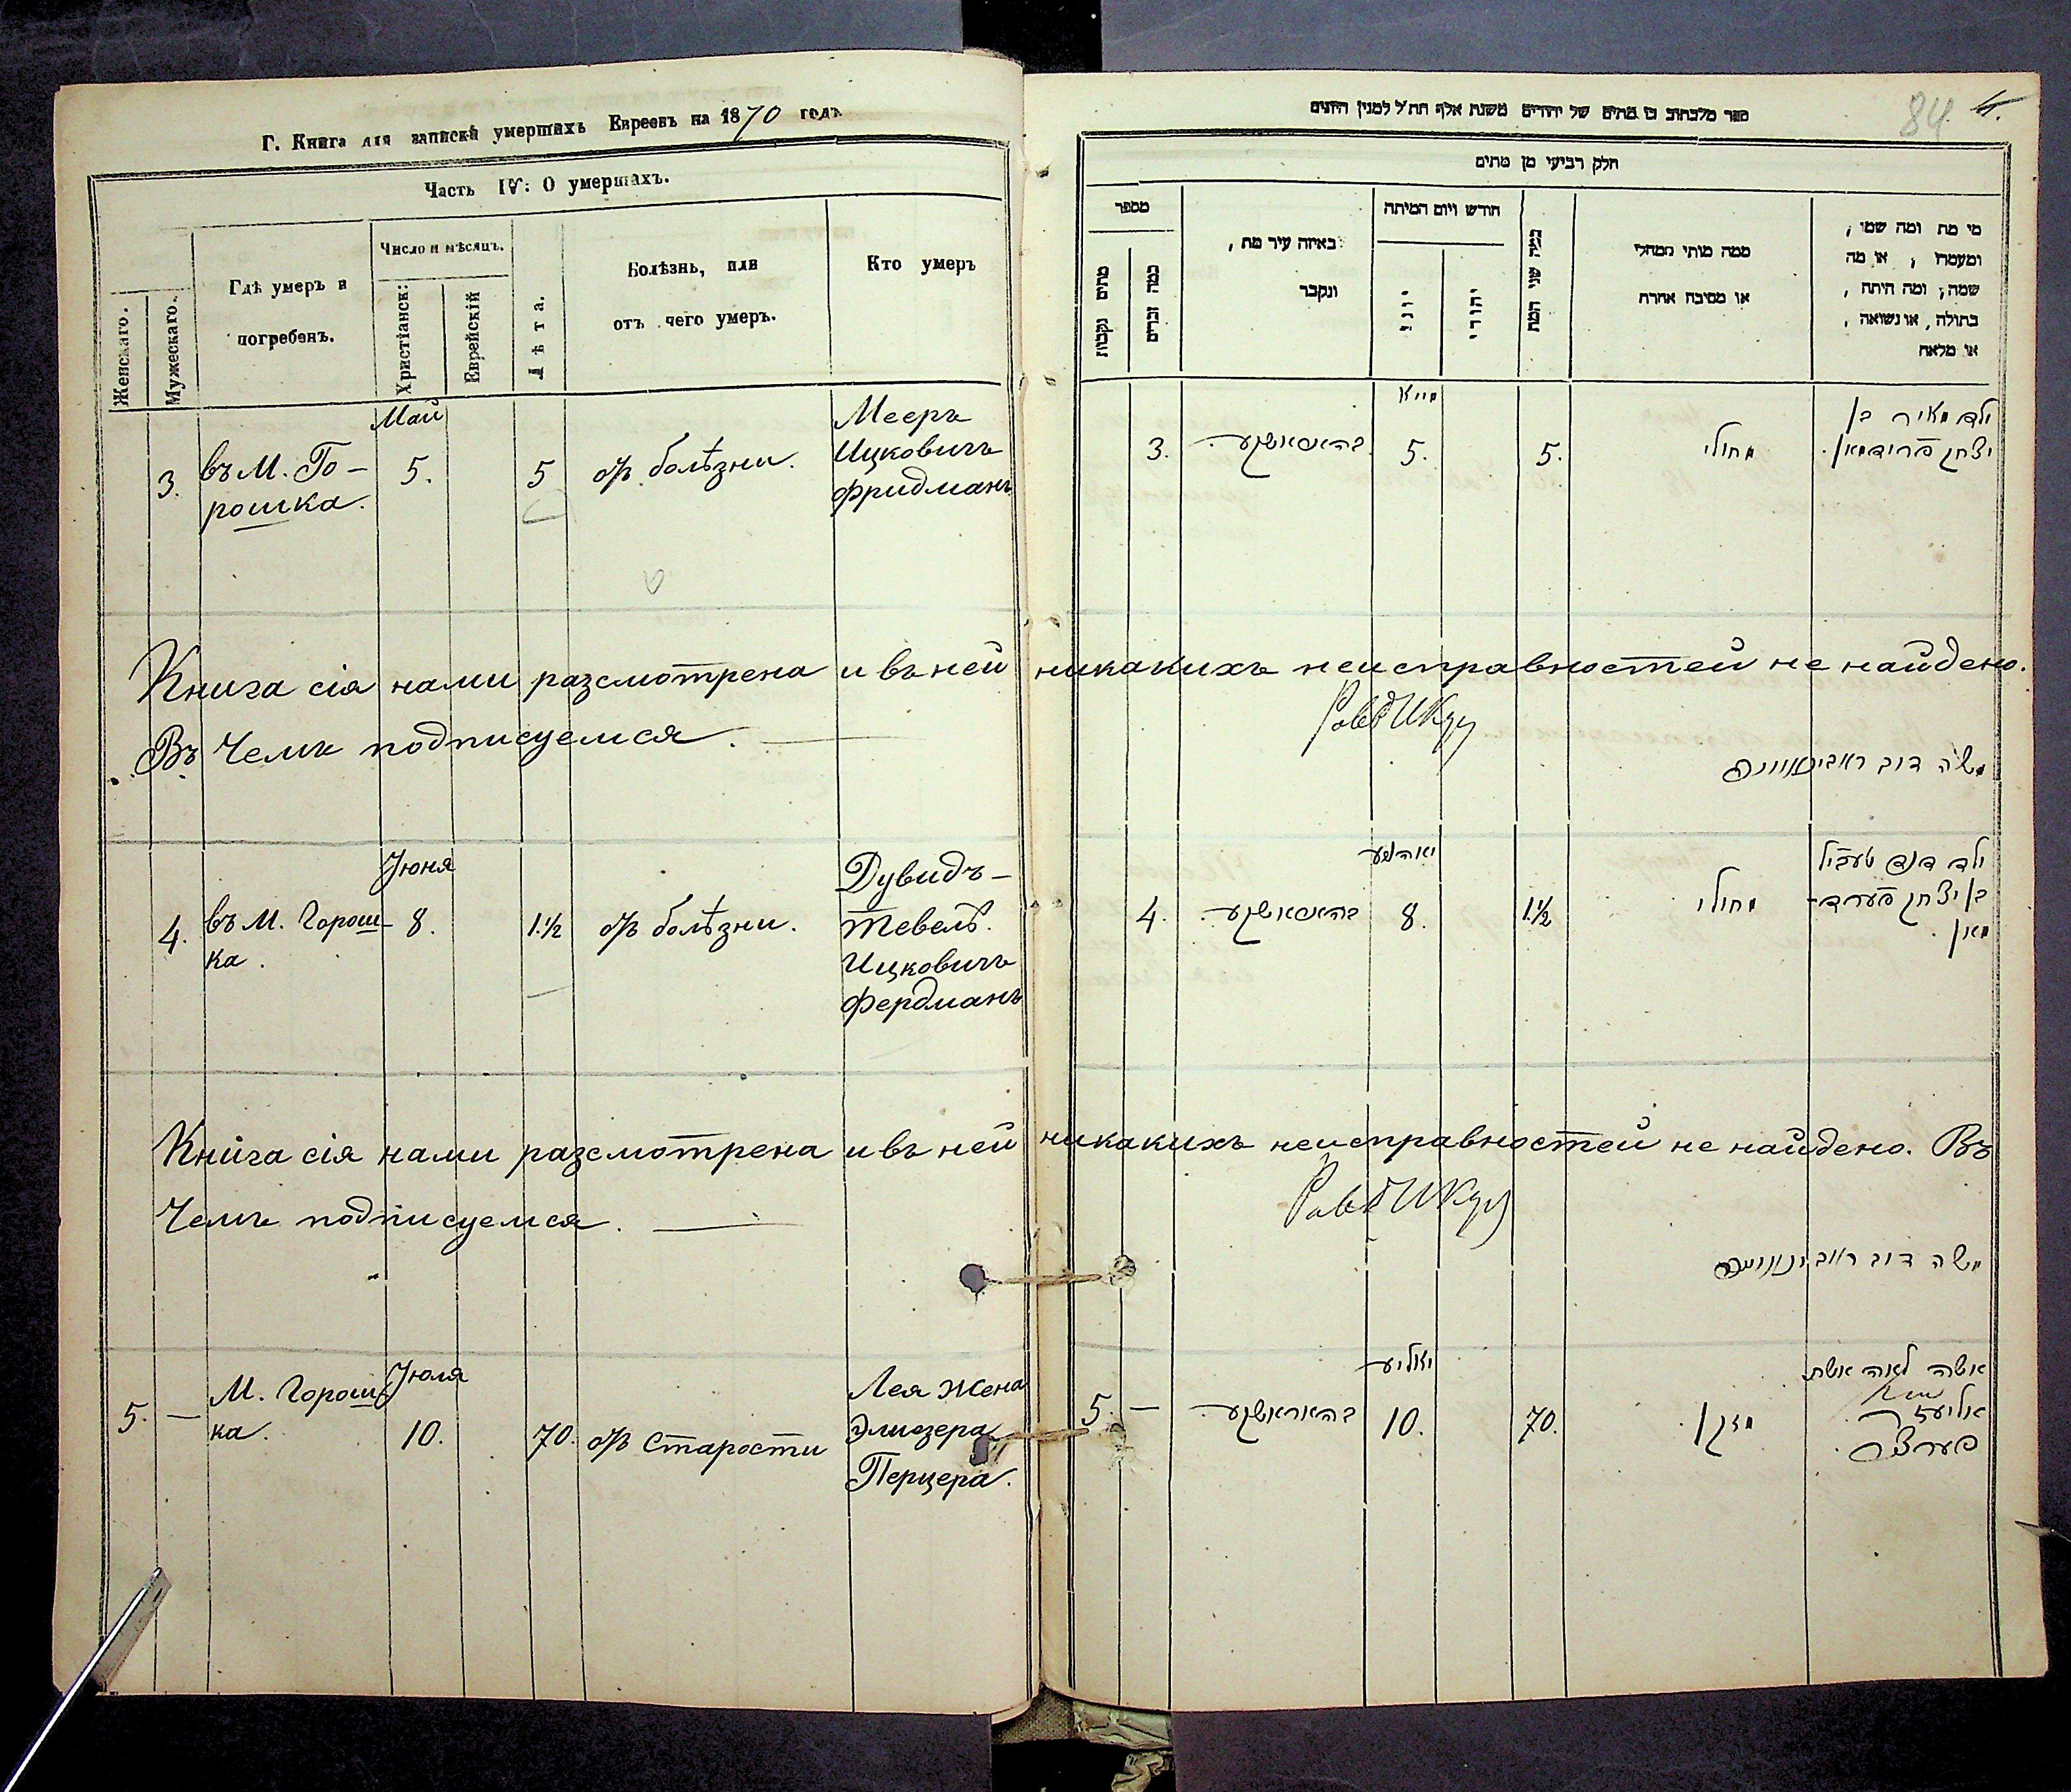 Г. Книга для записки умершихъ Евреевъ на 1870 годъ
Часть IV: О умершихъ.
Женскаго.
Мужескаго.
Гдѣ умеръ и
погребенъ.
Число и мѣсяцъ.
Христіанск:
Еврейскій
Лѣта.
Болѣзнь, или
отъ чего умеръ.
Кто умеръ
Май
3.
въ М. Го-
рошка.
5.
5
отъ болѣзни.
Мееръ
Ицковичъ
Фридманъ
Книга сія нами разсмотрена и въ ней никакихъ неисправностей не найдено.
Въ Чемъ подписуемся.
Іюня
4.
въ М. Горош-
ка.
8.
1.½
отъ болѣзни.
Дувидъ-
Тевель.
Ицковичъ
Фердманъ
Книга сія нами разсмотрена и въ ней никакихъ неисправностей не найдено. Въ
Чемъ подписуемся.
Іюля
5. —
М. Горош
ка.
10.
70.
отъ Старости
Лея Жена
Элиозера
Перцера.
84 4.
ספר מלכתוב בו מתים של יהודים משנת אלף תת״ל למנין היונים
חלק רביעי מן מתים
מספר
מתים נקבות
כמה זכרים
באיזה עיר מת,
ונקבר
חודש ויום המיתה
יוני
יהודי
כמה שני המת
ממה מותי ממחלי
או מסיבה אחרת
מי מת ומה שמו,
ומעמדו, או מה
שמה, ומה היתה,
בתולה, או נשואה,
או מלאה
מייא
3.
5.
5.
מחולי
ילד מאיר בן
יצחק פרידמאן.
משה דוב ראבינאוויץ
4.
8.
1.½
מחולי
ילד דוד טעביל
בן יצחק פערד-
מאן.
משה דוב ראבינאוויץ
יאוליע
5. —
10.
70.
מזקן.
אשה לאה אשת
אליעזר
פערצער.